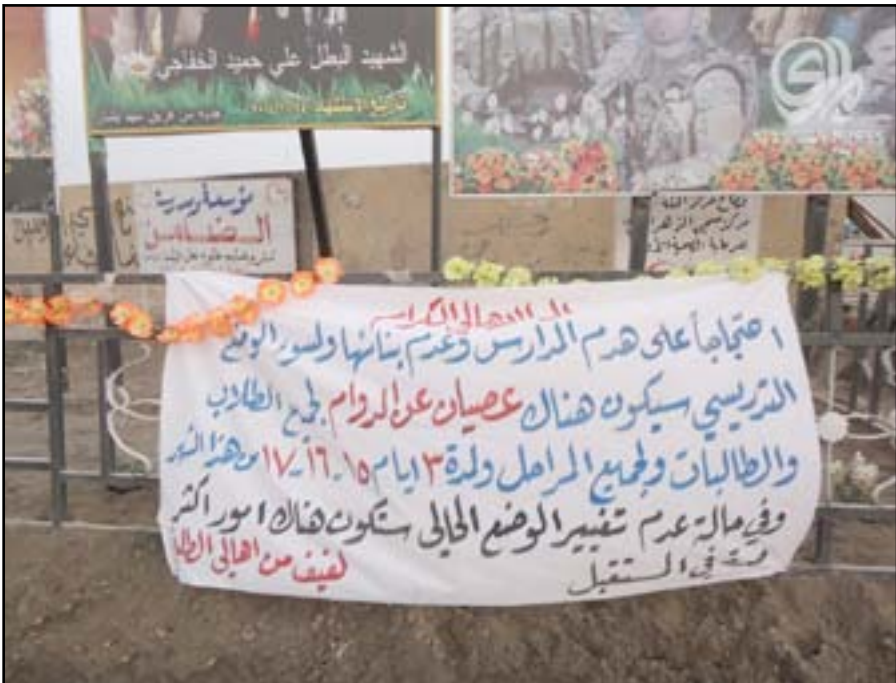 الشهيد البطل علي حميد الخفاجي
تاريخ الاستشهاد
مؤسسة ومدرسة
الضامن
الى الاهالي الكرام
احتجاجاً على هدم المدارس وعدم بنائها ولسوء الوضع
التدريسي سيكون هناك عصيان عن الدوام لجميع الطلاب
والطالبات ولجميع المراحل ولمدة ٣ ايام ١٥-١٦-١٧ من هذا الشهر
وفي حالة عدم تغيير الوضع الحالي ستكون هناك امور اكثر
في المستقبل
لفيف من اهالي